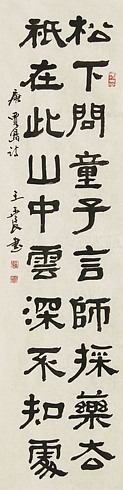 松下問童子言師採藥去
祇在此山中雲深不知處
唐賈島詩
王書